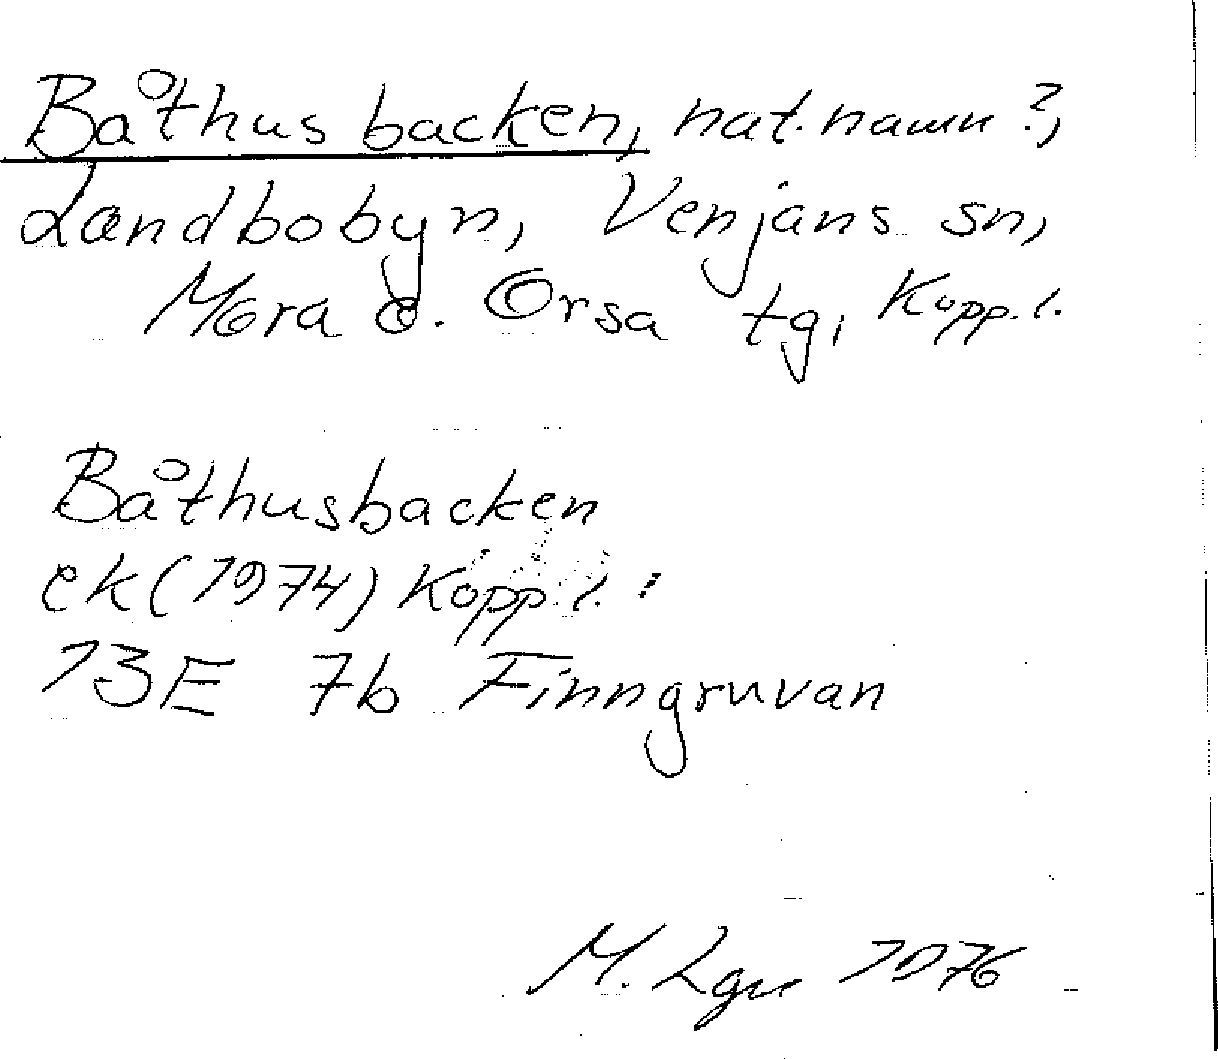 Båthusbacken, nat.namn?,
Landbobyn, Venjans sn,
Mora o. Orsa tg, Kopp.l.
Båthusbacken
ek (1974) Kopp.l. :
13E 7b Finngruvan
M. Lgn 1976